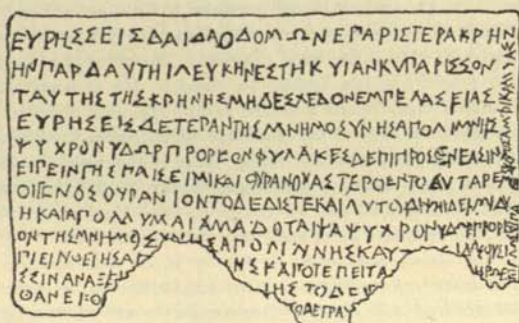 ΕΥΡΗΣΣΕΙΣΔΑΙΔΑΟΔΟΜΩΝΕΠΑΡΙΣΤΕΡΑΚΡΗ
ΗΝΠΑΡΔΑΥΤΗΙΛΕΥΚΗΝΕΣΤΗΚΥΙΑΝΚΥΠΑΡΙΣΣΟΝ
ΤΑΥΤΗΣΤΗΣΚΡΗΝΗΣΜΗΔΕΣΧΕΔΟΝΕΜΠΕΛΑΣΕΙΑΣ
ΕΥΡΗΣΕΙΣΔΕΤΕΡΑΝΤΗΣΜΝΗΜΟΣΥΝΗΣΑΠΟΛΙΜΝΗΣ
ΨΥΧΡΟΝΥΔΩΡΠΡΟΡΕΟΝΦΥΛΑΚΕΣΔΕΠΙΠΡΟΣΘΕΝΕΑΣΙΝ
ΕΙΠΕΙΝΓΗΣΠΑΙΣΕΙΜΙΚΑΙΟΥΡΑΝΟΥΑΣΤΕΡΟΕΝΤΟΣΑΥΤΑΡΕΜ
ΟΙΓΕΝΟΣΟΥΡΑΝΙΟΝΤΟΔΕΔΙΣΤΕΚΑΙΑΥΤΟΙ
ΗΚΑΙΑΠΟΛΛΥΜΑΙΑΛΛΑΔΟΤΑΙΨΑΨΥΧΡΟΝΥΔΩΡΠΡΟΡΕ
ΟΝΤΗΣΜΝΗΜΟΣΥΝΗΣΑΠΟΛΙΜΝΗΣΚΑΥΤ
ΠΙΕΙΝΘΕΙΗΣΑΠ ΝΗΣΚΑΙΠΟΤΕΠΕΙΤΑ ΗΡΩΕ
ΣΣΙΝΑΝΑΞΕ ΙΗΣΤΟΔΕ
ΘΑΝΕΙΣΘ ΤΟΔΕΓΡΑΨ